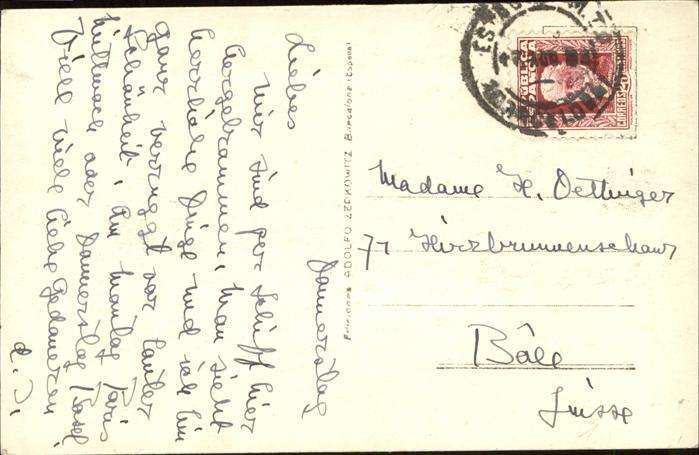 Donnerstag
Liebes
wir sind per Schiff hier
hergekommen, man sieht
herrliche Dinge und ich bin
ganz verrückt vor lauter
Schönheit. Am Montag Paris
Mittwoch oder Donnerstag Basel
Viele viele liebe Gedanken
Ediciones ADOLFO ZERKOWITZ Barcelona (España)
Madame H. Oettinger
77 Hirzbrunnenschanz
Bâle
Suisse